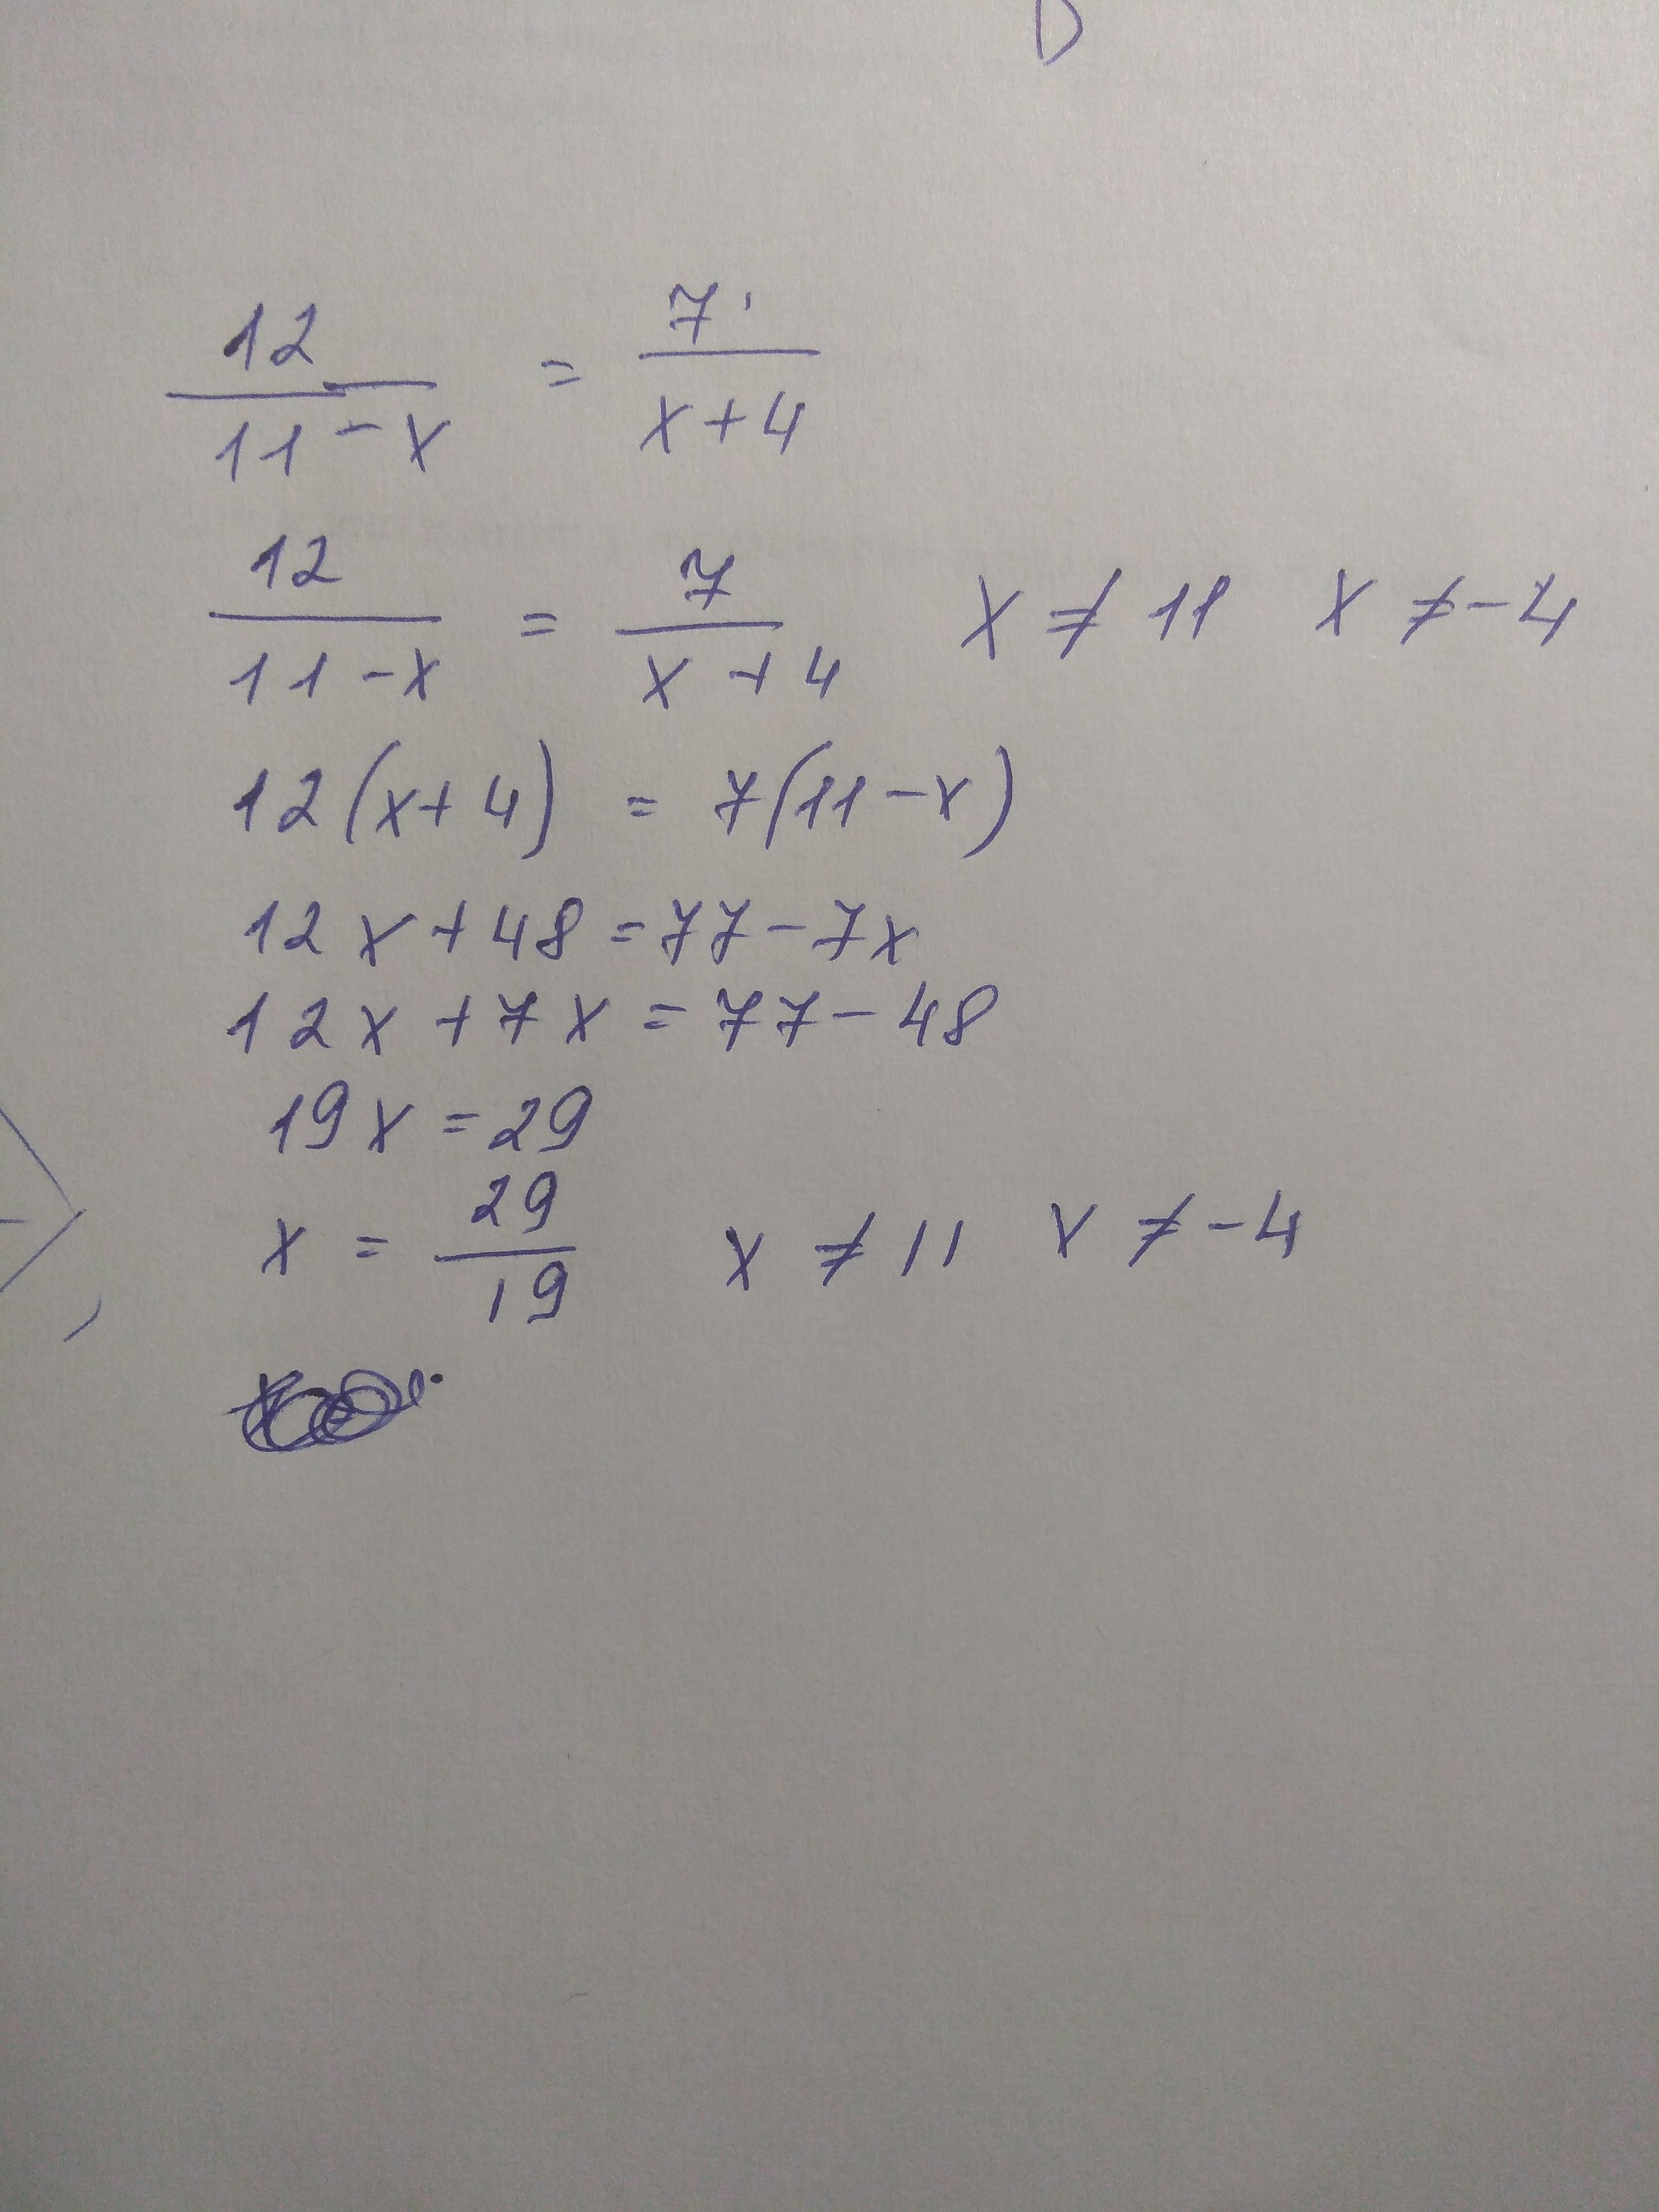 D
12/(11-x) = 7/(x+4)
12/(11-x) = 7/(x+4) x ≠ 11 x ≠ -4
12(x+4) = 7(11-x)
12x+48=77-7x
12x+7x=77-48
19x=29
x = 29/19 x ≠ 11 x ≠ -4